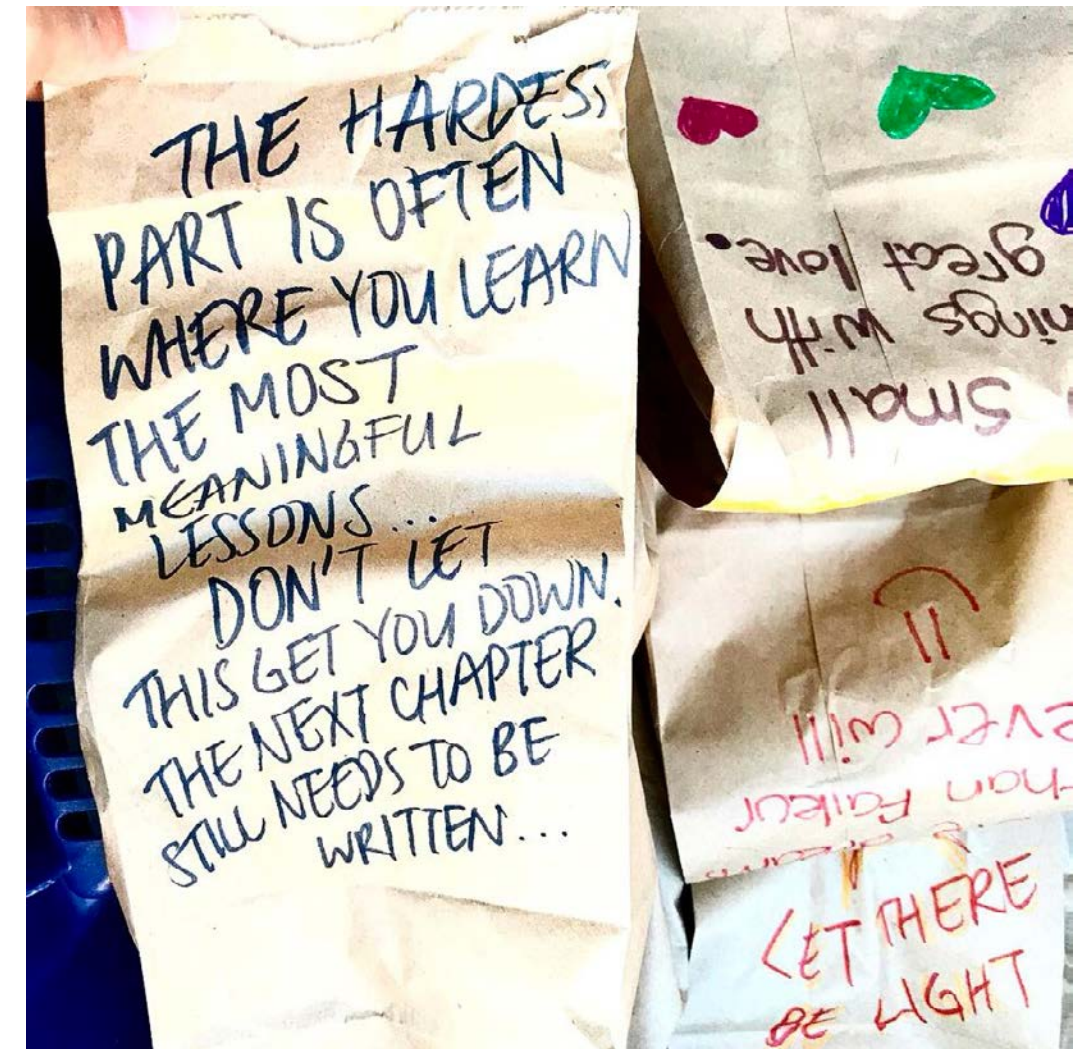 THE HARDEST
PART IS OFTEN
WHERE YOU LEARN
THE MOST
MEANINGFUL
LESSONS...
DON'T LET
THIS GET YOU DOWN.
THE NEXT CHAPTER
STILL NEEDS TO BE
WRITTEN...
Small
with
great love.
than Faileur
ever will
LET THERE
BE LIGHT